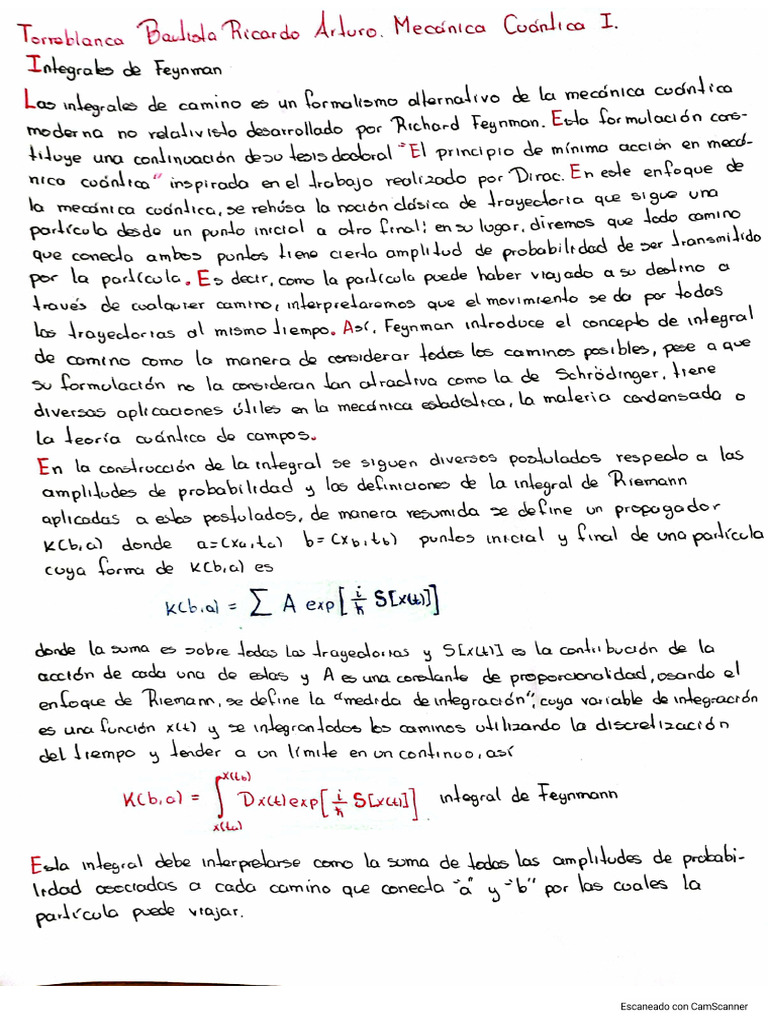 Torreblanca Bautista Ricardo Arturo. Mecánica Cuántica I.
Integrales de Feynman
Las integrales de camino es un formalismo alternativo de la mecánica cuántica
moderna no relativista desarrollado por Richard Feynman. Esta formulación cons-
tituye una continuación de su tesis doctoral "El principio de mínima acción en mecá-
nica cuántica" inspirada en el trabajo realizado por Dirac. En este enfoque de
la mecánica cuántica, se rehúsa la noción clásica de trayectoria que sigue una
partícula desde un punto inicial a otro final; en su lugar, diremos que todo camino
que conecta ambos puntos tiene cierta amplitud de probabilidad de ser transmitido
por la partícula. Es decir, como la partícula puede haber viajado a su destino a
través de cualquier camino, interpretaremos que el movimiento se da por todas
las trayectorias al mismo tiempo. Así, Feynman introduce el concepto de integral
de camino como la manera de considerar todos los caminos posibles, pese a que
su formulación no la consideran tan atractiva como la de Schrödinger, tiene
diversas aplicaciones útiles en la mecánica estadística, la materia condensada o
la teoría cuántica de campos.
En la construcción de la integral se siguen diversos postulados respecto a las
amplitudes de probabilidad y las definiciones de la integral de Riemann
aplicadas a estos postulados, de manera resumida se define un propagador
K(b,a) donde a=(xa,ta) b=(xb,tb) puntos inicial y final de una partícula
cuya forma de K(b,a) es
K(b,a) = ∑ A exp[i/ħ S[x(t)]]
donde la suma es sobre todas las trayectorias y S[x(t)] es la contribución de la
acción de cada una de estas y A es una constante de proporcionalidad, usando el
enfoque de Riemann, se define la "medida de integración", cuya variable de integración
es una función x(t) y se integran todos los caminos utilizando la discretización
del tiempo y tender a un límite en un continuo, así
K(b,a) = ∫x(ta)x(tb) Dx(t) exp[i/ħ S[x(t)]] integral de Feynmann
Esta integral debe interpretarse como la suma de todas las amplitudes de probabi-
lidad asociadas a cada camino que conecta "a" y "b" por las cuales la
partícula puede viajar.
Escaneado con CamScanner